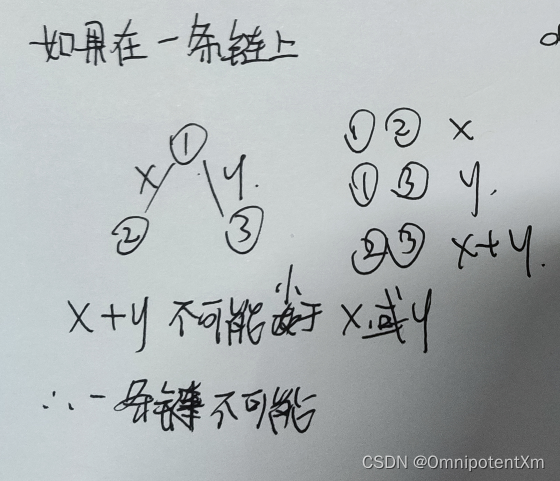 如果在一条链上
①
x y.
② ③
① ② x
① ③ y.
② ③ x+y.
x+y 不可能小于 x或y
∴一条链不可能
CSDN @OmnipotentXm